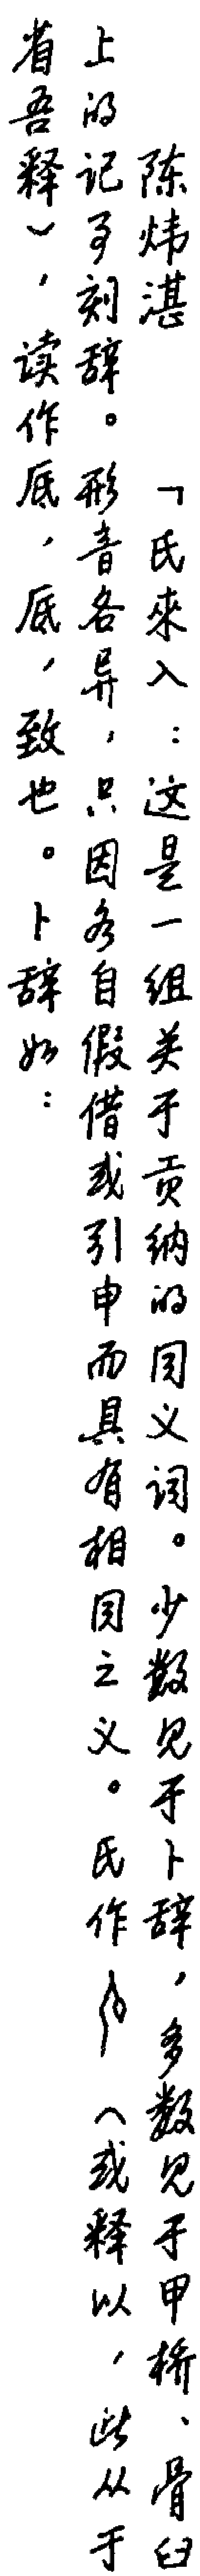 陈炜湛　「氏来入：这是一组关于贡纳的同义词。少数见于卜辞，多数见于甲桥、骨臼
上的记事刻辞。形音各异，只因各自假借或引申而具有相同之义。氏作（或释以，此从于
省吾释），读作厎，厎，致也。卜辞如：